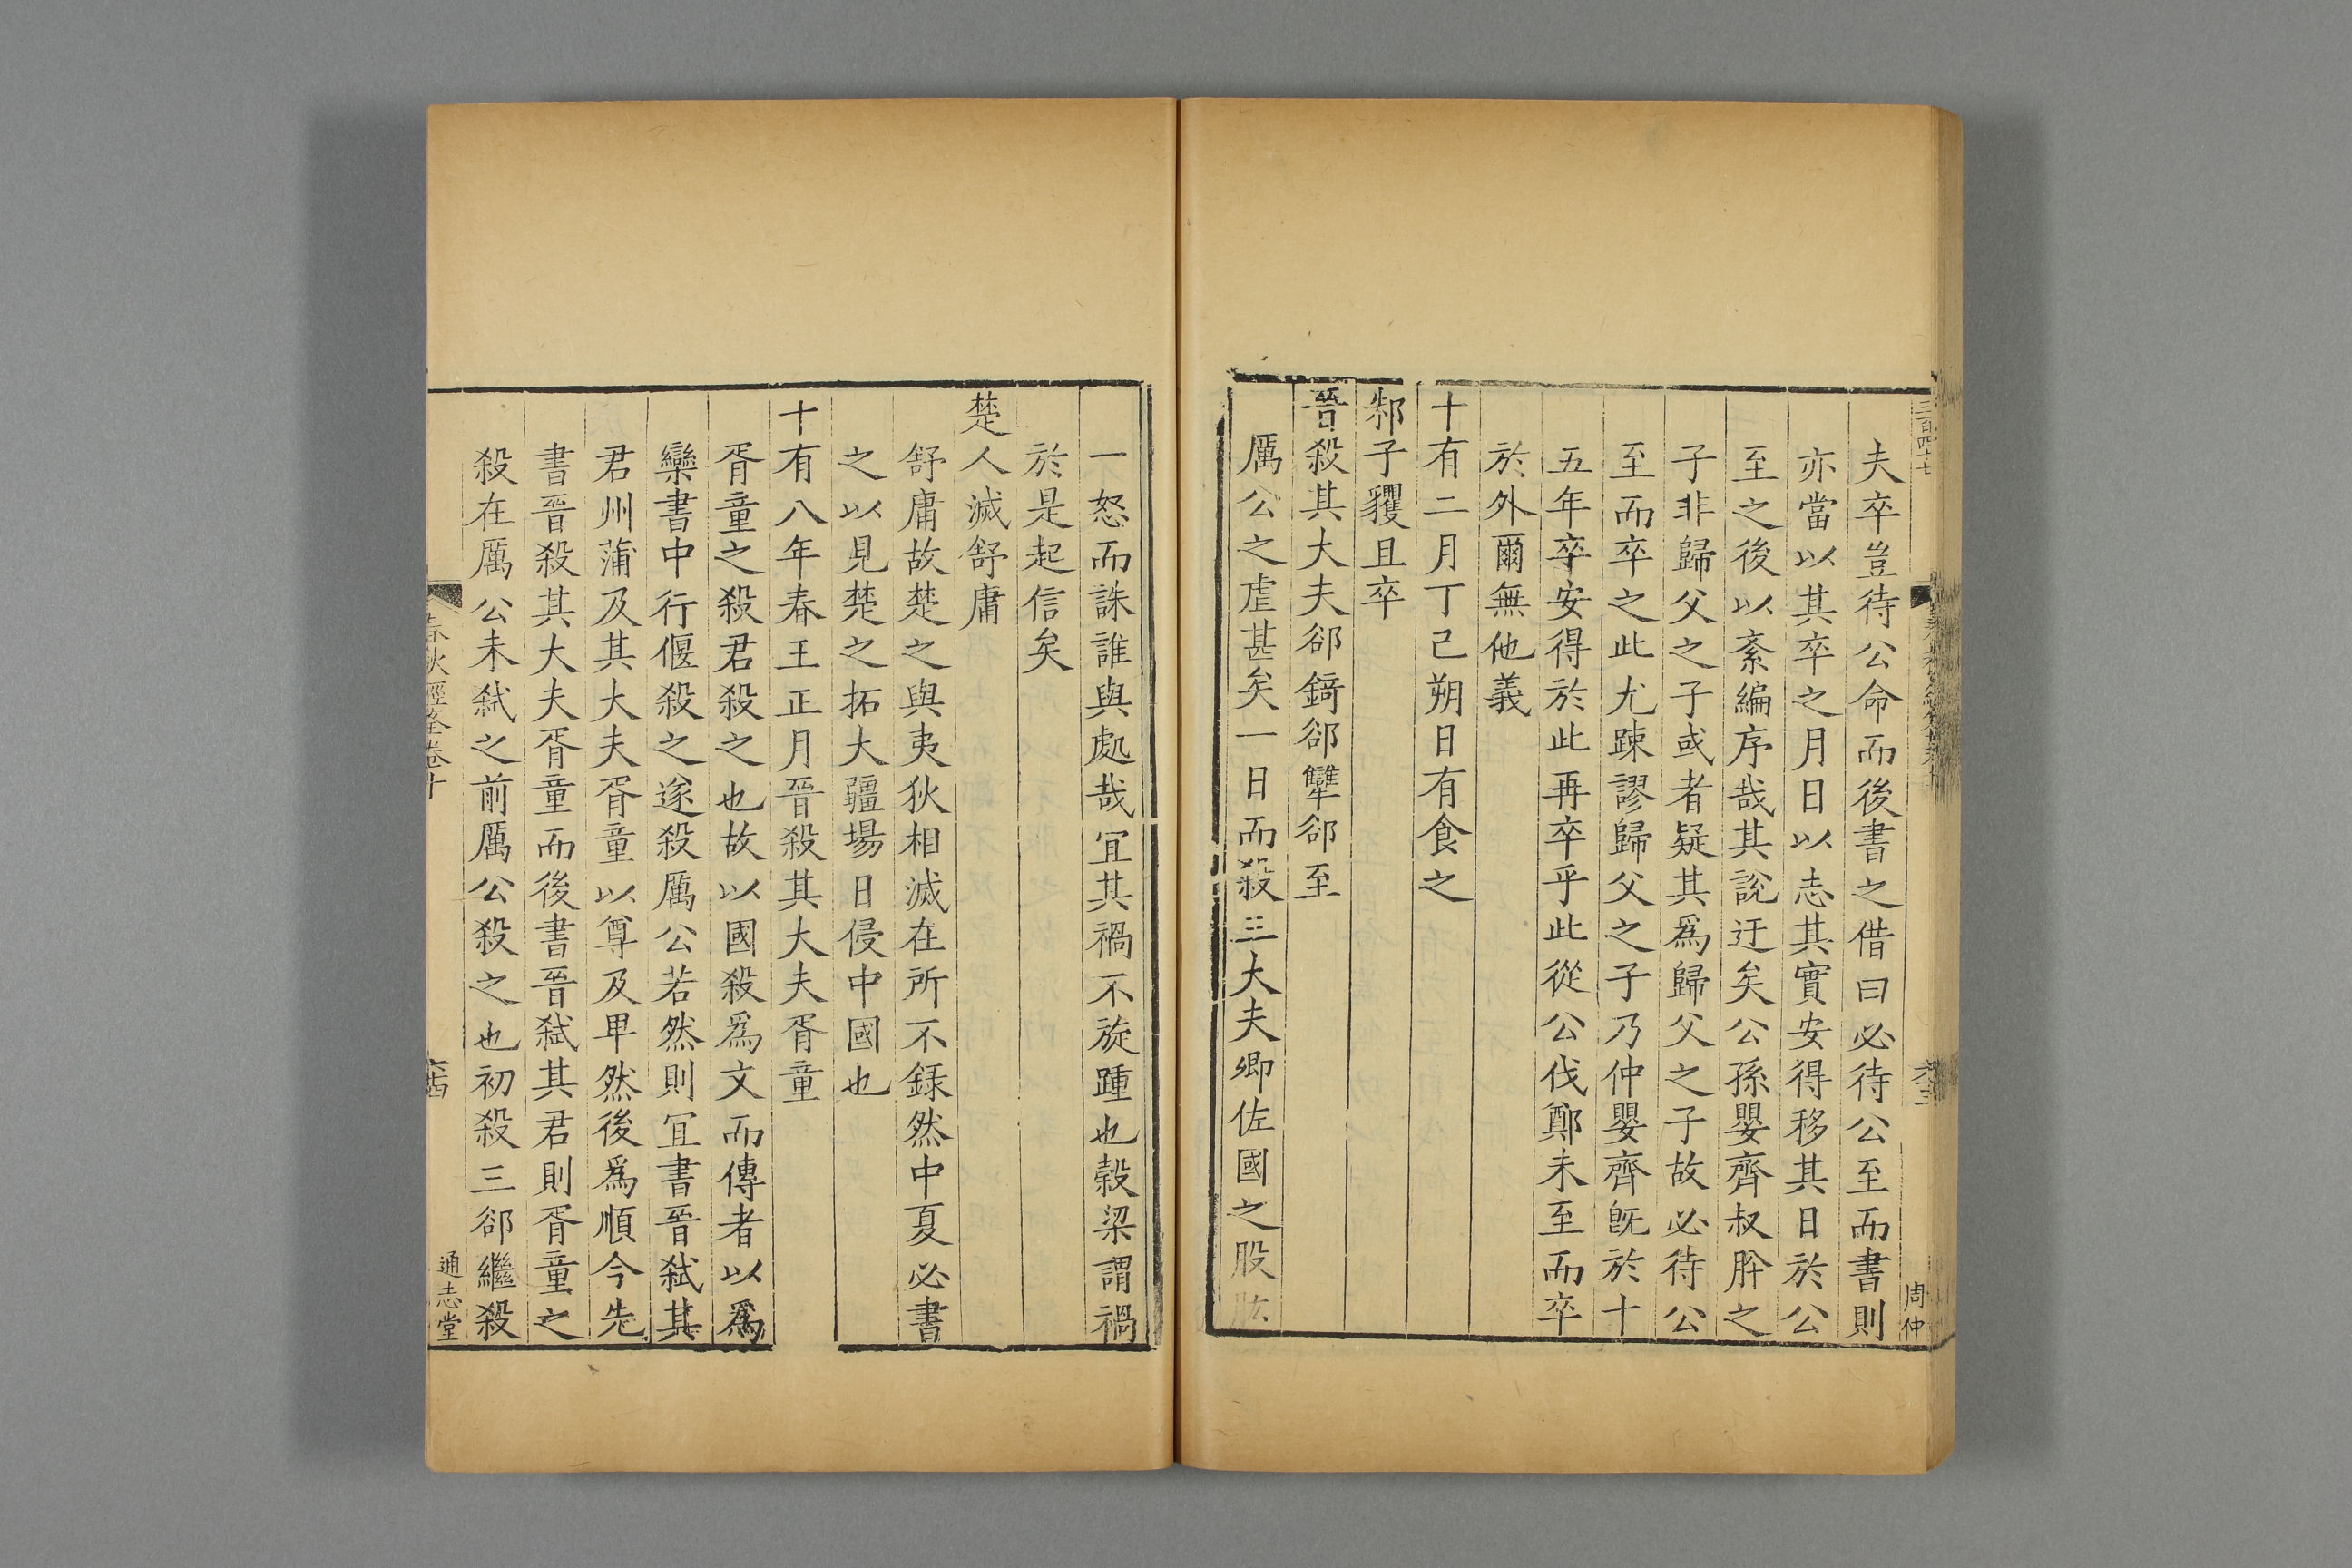 三百四十七
周仲
夫卒豈待公命而後書之借曰必待公至而書則
亦當以其卒之月日以志其實安得移其日於公
至之後以紊編序哉其說迂矣公孫嬰齊叔肸之
子非歸父之子或者疑其爲歸父之子故必待公
至而卒之此尤踈謬歸父之子乃仲嬰齊旣於十
五年卒安得於此再卒乎此從公伐鄭未至而卒
於外爾無他義
十有二月丁巳朔日有食之
邾子貜且卒
晉殺其大夫郤錡郤犫郤至
厲公之虐甚矣一日而殺三大夫卿佐國之股肱
一怒而誅誰與處哉宜其禍不旋踵也榖梁謂禍
於是起信矣
楚人滅舒庸
舒庸故楚之與夷狄相滅在所不録然中夏必書
之以見楚之拓大疆場日侵中國也
十有八年春王正月晉殺其大夫胥童
胥童之殺君殺之也故以國殺爲文而傳者以爲
欒書中行偃殺之遂殺厲公若然則宜書晉弑其
君州蒲及其大夫胥童以尊及卑然後爲順今先
書晉殺其大夫胥童而後書晉弑其君則胥童之
殺在厲公未弑之前厲公殺之也初殺三郤繼殺
春秋經筌卷十
通志堂